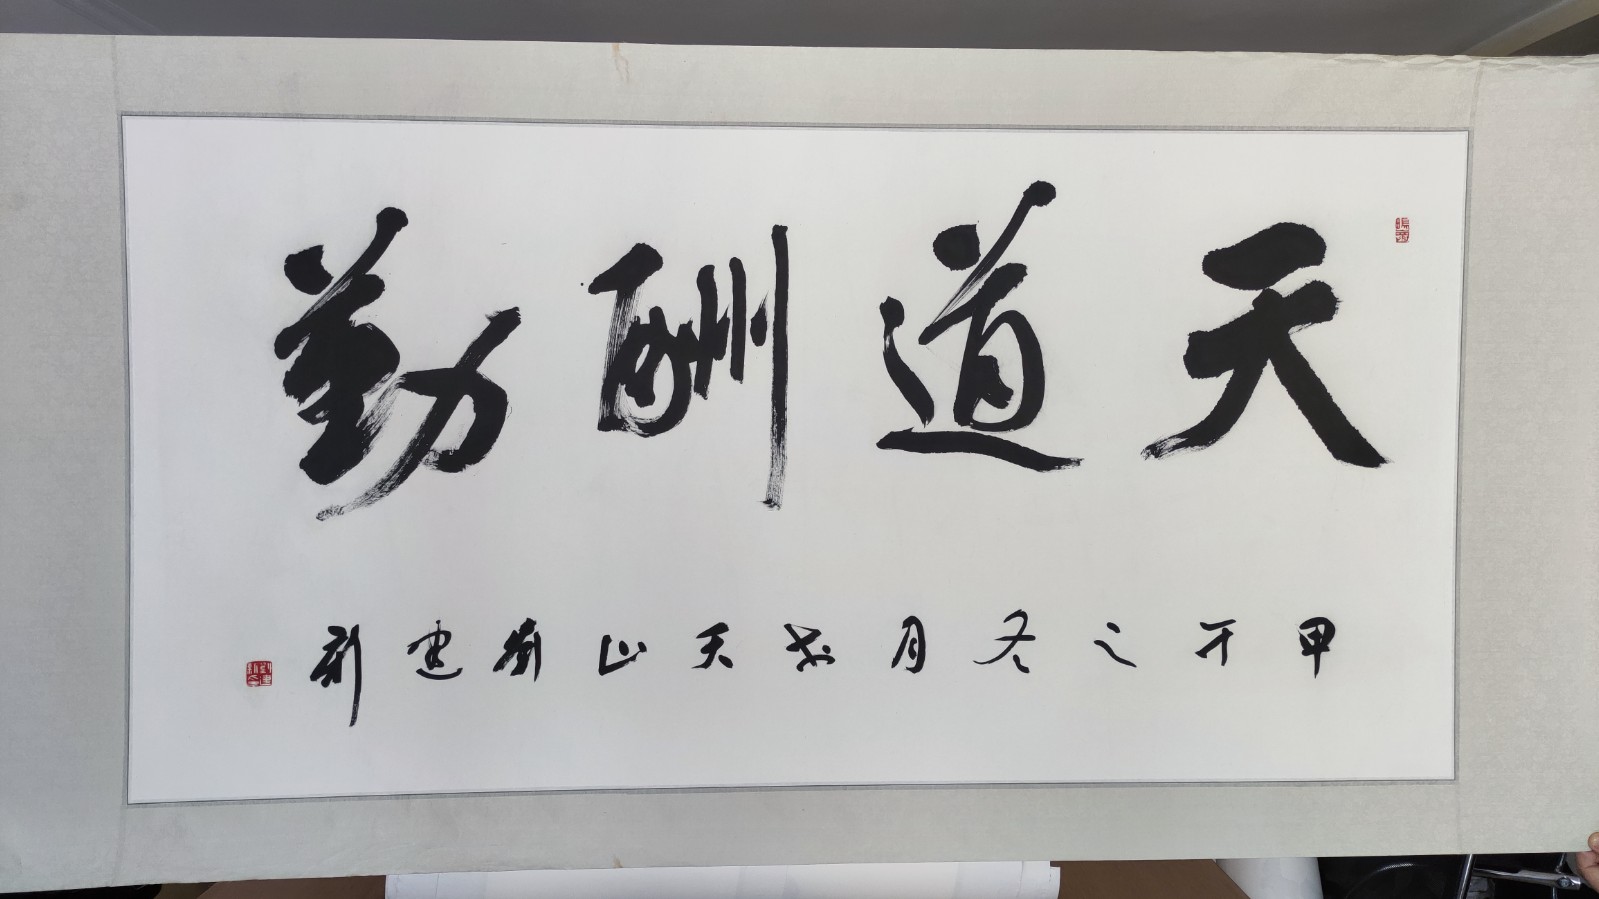 天道酬勤
甲午之冬月书天山刘建新